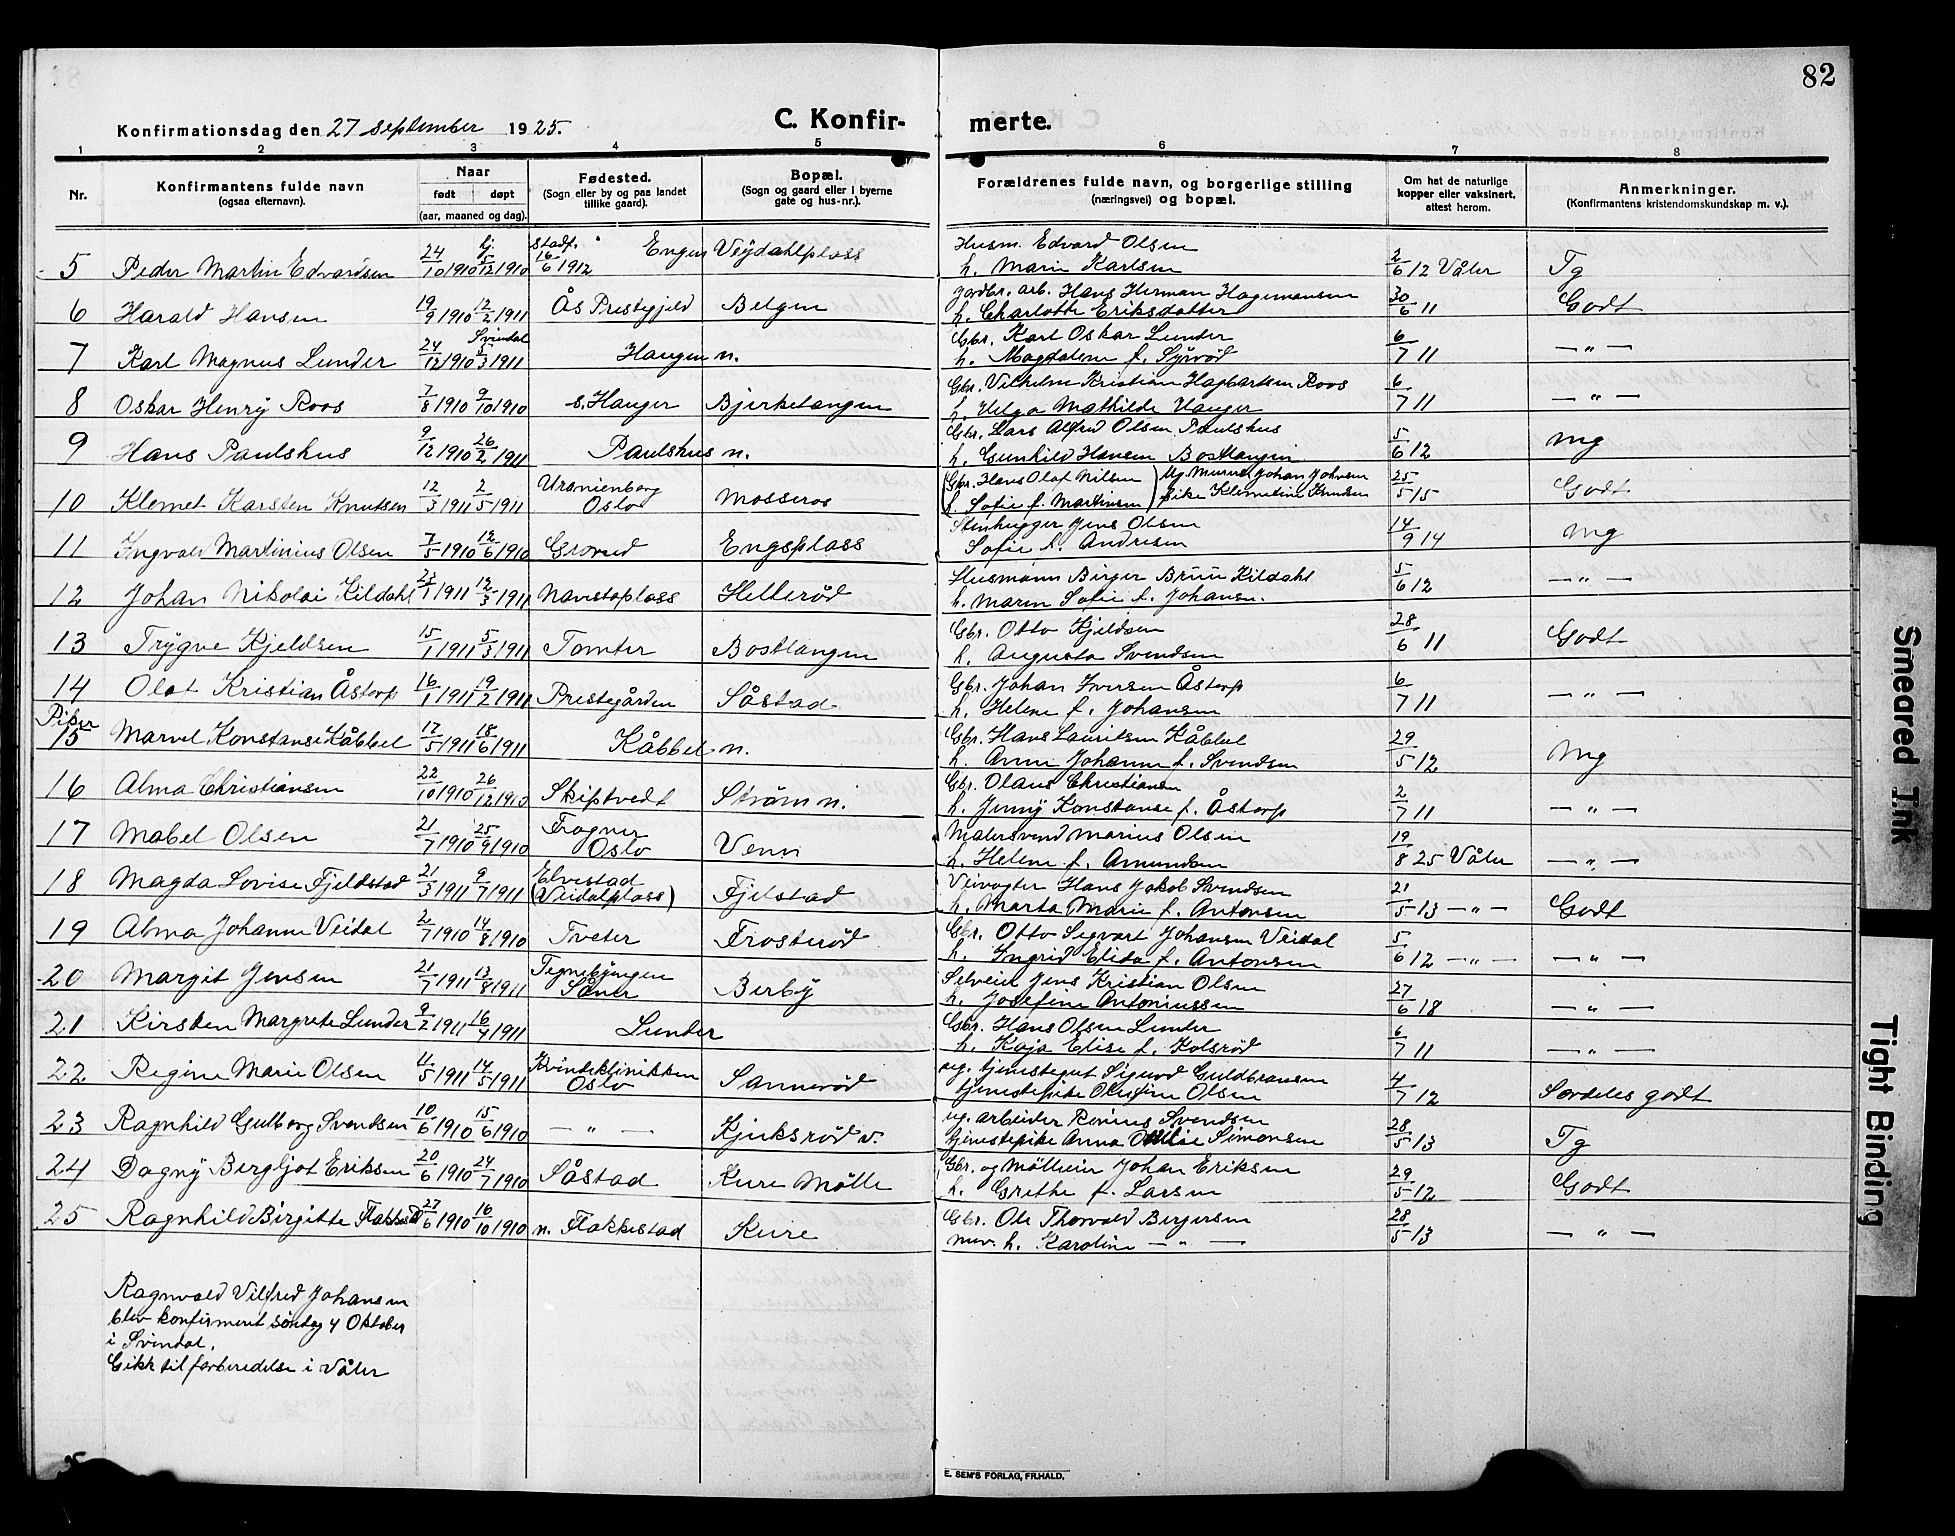 82
Konfirmationsdag den 27 september 1925.
C. Konfir- merte.
1 2 3 4 5 6 7 8
Nr. Konfirmantens fulde navn (ogsaa efternavn). Naar født døpt (aar, maaned og dag). Fødested. (Sogn eller by og paa landet tillike gaard). Bopæl. (Sogn og gaard eller i byerne gate og hus-nr.). Forældrenes fulde navn, og borgerlige stilling (næringsvei) og bopæl. Om hat de naturlige kopper eller vaksinert, attest herom. Anmerkninger. (Konfirmantens kristendomskundskap m. v.).
stadf. Husm. Edvard Olsen
5 Peder Martin Edvardsen 24/10 1910 5/12 1910 16/6 1912 Engen Veydahlplass h. Marie Karlsen 2/6 12 Våler Tg
gardbr. arb. Hans Herman Hagemansen
6 Harald Hansen 19/9 1910 12/2 1911 Ås Prestegjeld Belgen h. Charlotte Eriksdatter 30/6 11 Godt
Svindal Gbr. Karl Oskar Lunder
7 Karl Magnus Lunder 24/12 1910 5/3 1911 Haugen n. h. Magdalene f. Syverød 6/7 11 — " —
Gbr. Vilhelm Kristian Hagbartsen Roos
8 Oskar Henry Roos 7/8 1910 9/10 1910 s. Hauger Bjerketangen h. Helga Mathilde Hauger 6/7 11 — " —
Gbr. Lars Alfred Olsen Paulshus
9 Hans Paulshus 9/12 1910 26/2 1911 Paulshus n. h. Gunhild Hansen Bostlangen 5/6 12 Mg
Gbr. Hans Olaf Nilsen Ug. Murer Johan Johnsen
10 Klemet Karsten Knutsen 12/3 1911 2/5 1911 Uranienborg Oslo Mosseros h. Sofie f. Martinsen Pike Klementine Knudsen 25/5 15 Godt
Stenhugger Jens Olsen
11 Ingvald Martinius Olsen 7/5 1910 12/6 1910 Grorud Engsplass Sofie f. Andresen 14/9 14 Mg
Husmann Birger Bruu Kildahl
12 Johan Nikolai Kildahl 23/1 1911 12/3 1911 Navestaplass Hellerød h. Maren Sofie f. Johansen. 5/6 12 — " —
Gbr. Otto Kjeldsen
13 Trygve Kjeldsen 15/1 1911 5/3 1911 Tomter Bostlangen h. Augusta Svendsen 28/6 11 Godt
Gbr. Johan Iversen Åstorp
14 Olaf Kristian Åstorp 16/1 1911 19/2 1911 Prestegården Såstad h. Helene f. Johansen 6/7 11 — " —
Piker Gbr. Hans Lauritsen Kåbbel
15 Marvel Konstanse Kåbbel 17/5 1911 18/6 1911 Kåbbel n. h. Anna Johanne f. Svendsen 29/5 12 Mg
Gbr. Olaus Christiansen
16 Alma Christiansen 22/10 1910 26/12 1910 Skiptvedt Strøm n. h. Jenny Konstanse f. Åstorp 2/7 11 — " —
Malersvend Marius Olsen
17 Mabel Olsen 21/7 1910 25/9 1910 Frogner Oslo Venn h. Helene f. Amundsen 19/8 25 Våler — " —
Veivogter Hans Jakob Svendsen
18 Magda Lovise Fjeldstad 21/3 1911 9/7 1911 Elvestad (Veidalplass) Fjelstad h. Marta Marie f. Antonsen 21/5 13 — " — Godt
Gbr. Otto Segvart Johansen Veidal
19 Alma Johanne Veidal 2/7 1910 14/8 1910 Tveter Frosterød h. Ingrid Elida f. Antonsen 5/6 12 — " — — " —
Selveier Jens Kristian Olsen
20 Margit Jensen 21/7 1911 13/8 1911 Tegnebyengen Såner Berby h. Josefine Antoniussen 27/6 18 — " —
Gbr. Hans Olsen Lunder
21 Kirsten Margrete Lunder 9/2 1911 16/4 1911 Lunder h. Kaja Elise f. Kolsrød 6/7 11 — " —
ug. tjenestegut Sigurd Guldbransen
22 Regine Marie Olsen 11/5 1911 14/5 1911 Kvindeklinikken Oslo Sannerød tjenestepike Olefine Olsen 4/7 12 Særdeles godt
ug. arbeider Rinius Svendsen
23 Ragnhild Gulborg Svendsen 10/6 1910 15/6 1910 — " — Kjuksrød v. tjenestepike Anna Otilie Simonsen 28/5 13 Tg
Gbr. og Mølleeier Johan Eriksen
24 Dagny Bergljot Eriksen 20/6 1910 24/7 1910 Såstad Kure Mølle h. Grethe f. Larsen 29/5 12 Godt
Gbr. Ole Thorvald Birgersen
25 Ragnhild Birgitte Flakkestad 27/6 1910 16/10 1910 n. Flakkestad Kure nuv. h. Karoline — " — 28/5 13 — " —
Ragnvald Vilfred Johansen
blev konfirmert söndag 4 Oktober
i Svindal.
Gikk til forberedelse i Våler
E. SEM'S FORLAG, FR.HALD.
Smeared Ink
Tight Binding